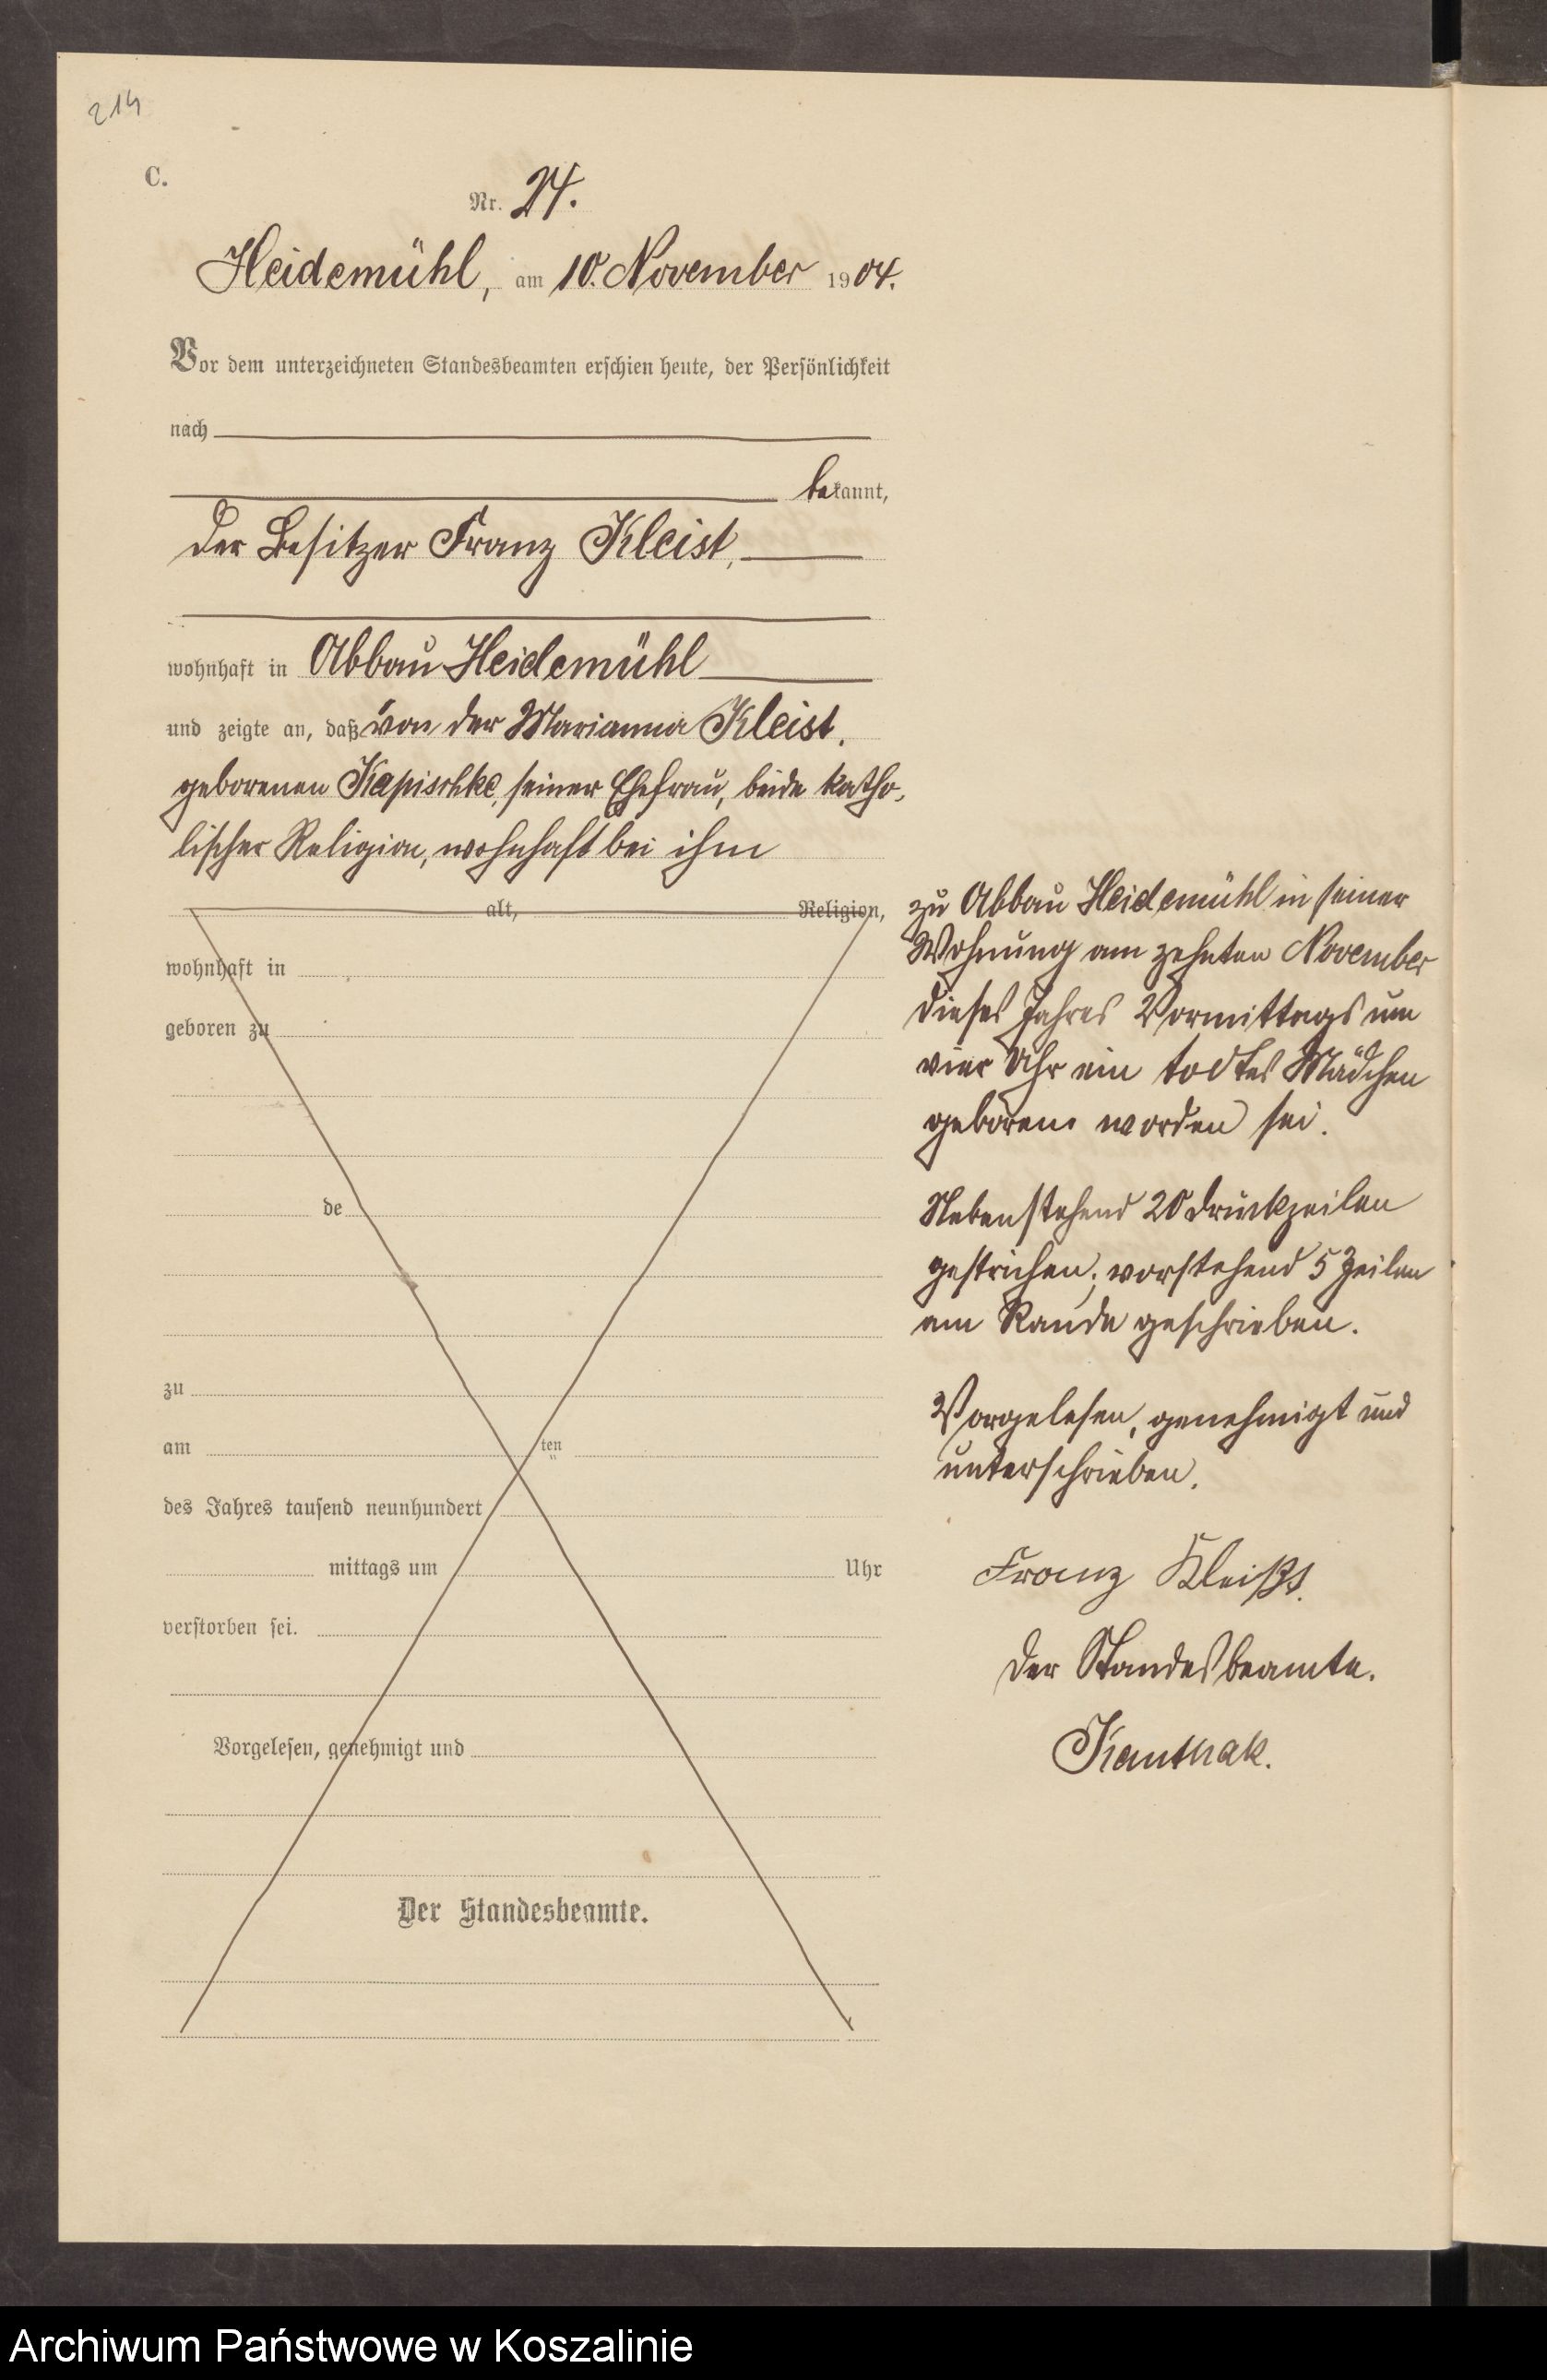 214
C.
Nr. 24.
Heidemühl, am 10. November 1904.
Vor dem unterzeichneten Standesbeamten erschien heute, der Persönlichkeit
nach
bekannt,
der Besitzer Franz Kleist,
wohnhaft in Abbau Heidemühl
und zeigte an, daß von der Marianna Kleist,
geborenen Kapischke, seiner Ehefrau, beide katho-
lischer Religion, wohnhaft bei ihm
alt, Religion,
wohnhaft in
geboren zu
de
zu
am ten
des Jahres tausend neunhundert
mittags um Uhr
verstorben sei.
Vorgelesen, genehmigt und
Der Standesbeamte.
zu Abbau Heidemühl in seiner
Wohnung am zehnten November
dieses Jahres Vormittags um
vier Uhr ein todtes Mädchen
geboren worden sei.
Nebenstehend 20 Druckzeilen
gestrichen; vorstehend 5 Zeilen
am Rande geschrieben.
Vorgelesen, genehmigt und
unterschrieben.
Franz Kleißt.
Der Standesbeamte.
Kanthak.
Archiwum Państwowe w Koszalinie